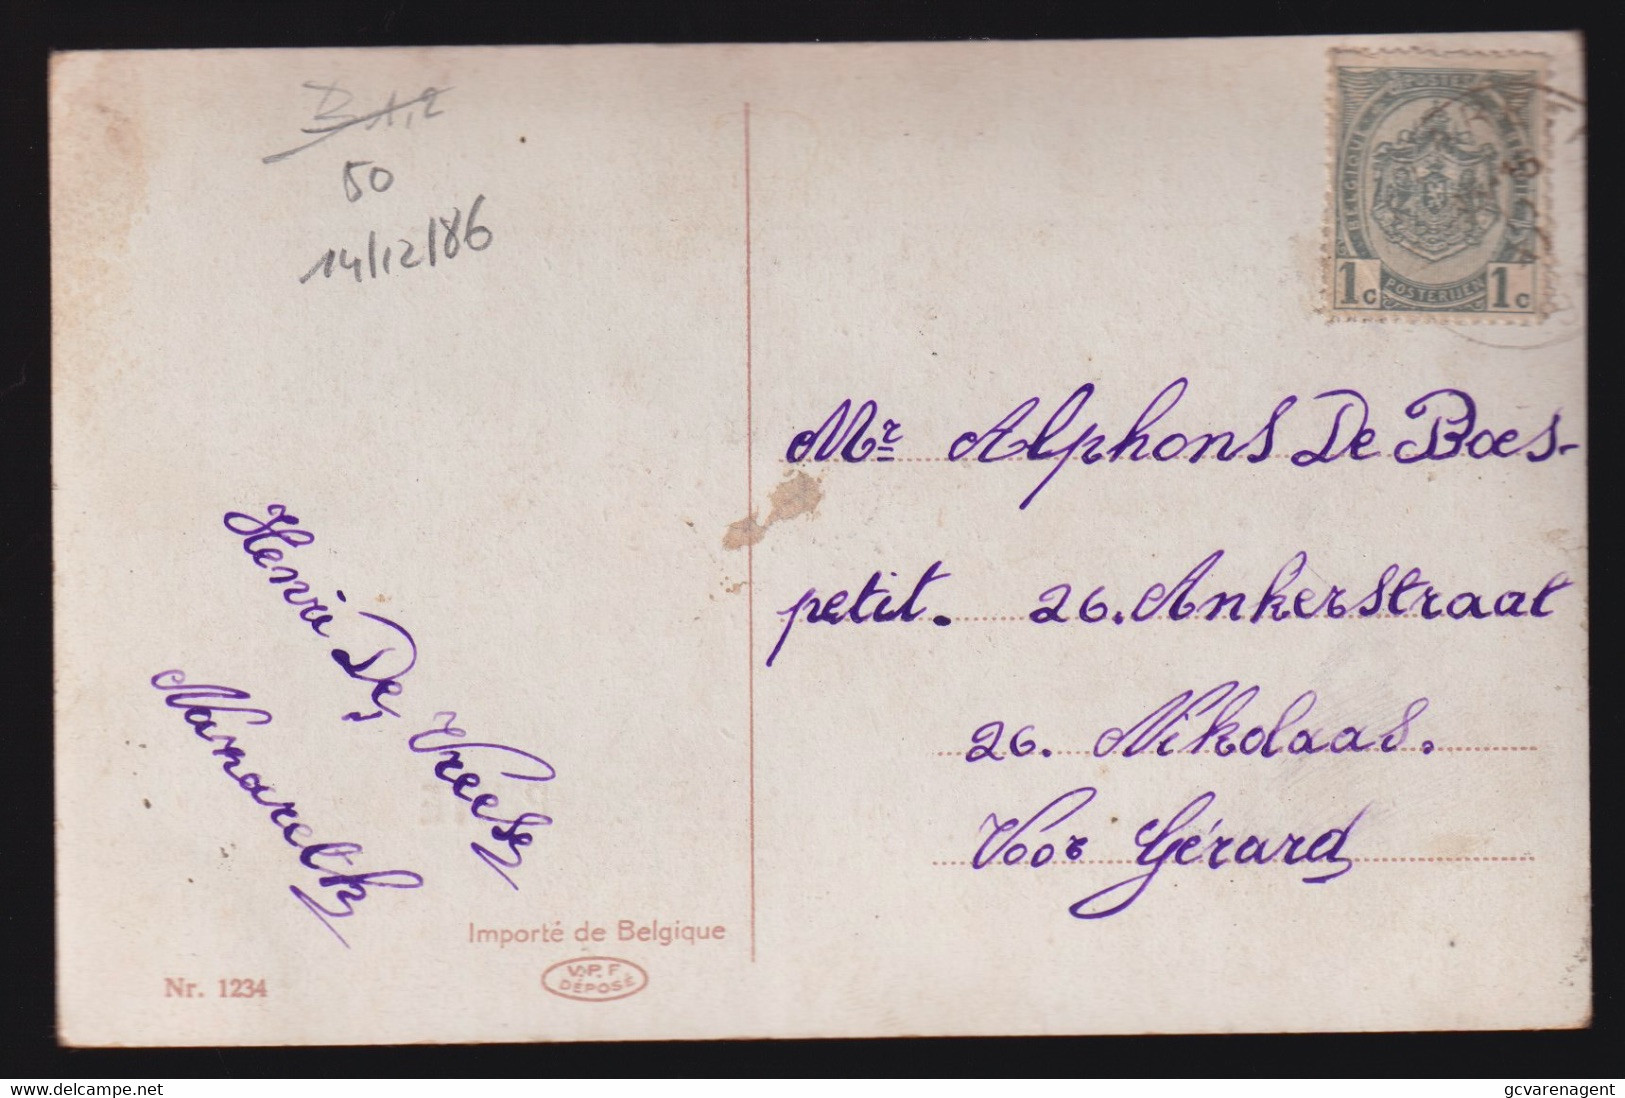 B 1,2
50
14/12/86
POSTES
BELGIQUE
1c POSTERIJEN 1c
Mr Alphons De Boes-
petit. 26. Ankerstraat
26. Nikolaas.
Voor Gérard
Henri De Vreese
Importé de Belgique
V.P.F
DÉPOSÉ
Nr. 1234
delcampe.net
gcvarenagent